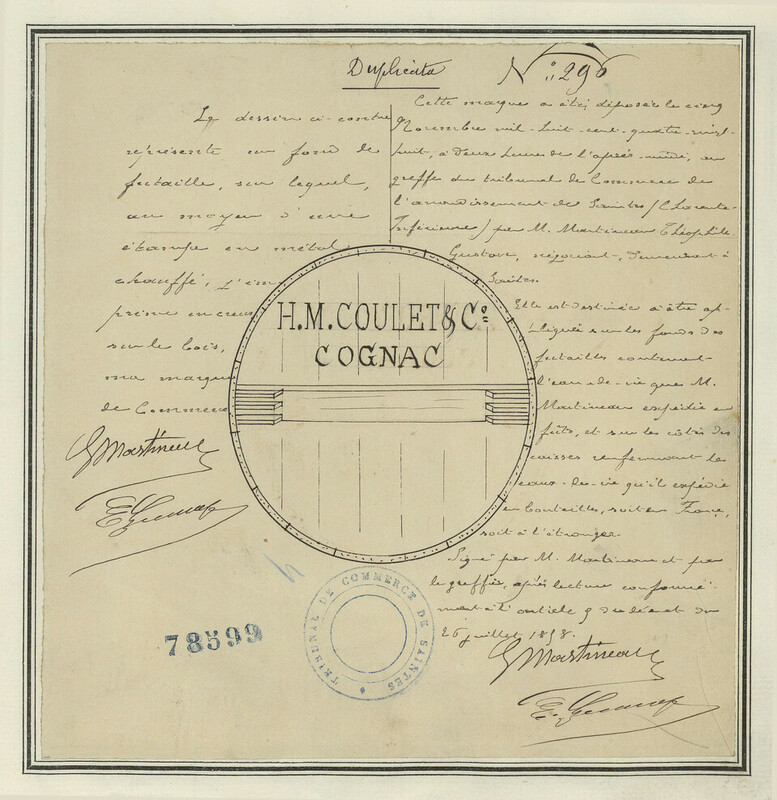 Duplicata
N° 296
Le dessin ci-contre
représente un fond de
futaille, sur lequel,
au moyen d'une
étampe en métal
chauffé, s'im
prime en creux
sur le bois,
ma marque
de Commerce
G Martineau
Cette marque a été déposée le cinq
Novembre mil huit-cent-quatre-vingt-
huit, à deux heures de l'après-midi, au
greffe du tribunal de Commerce de
l'arrondissement de Saintes (Charente-
Inférieure) par M. Martineau Théophile-
Gustave, négociant, demeurant à
Saintes.
Elle est destinée à être ap-
pliquée sur les fonds des
futailles contenant
l'eau-de-vie que M.
Martineau expédie en
fûts, et sur les côtés des
caisses renfermant les
eaux-de-vie qu'il expédie
en bouteilles, soit en France,
soit à l'étranger.
Signé par M. Martineau et par
le greffier, après lecture conformé-
ment à l'article 9 du décret du
26 juillet 1858.
G Martineau
H.M. COULET & Co
COGNAC
78599
TRIBUNAL DE COMMERCE DE SAINTES